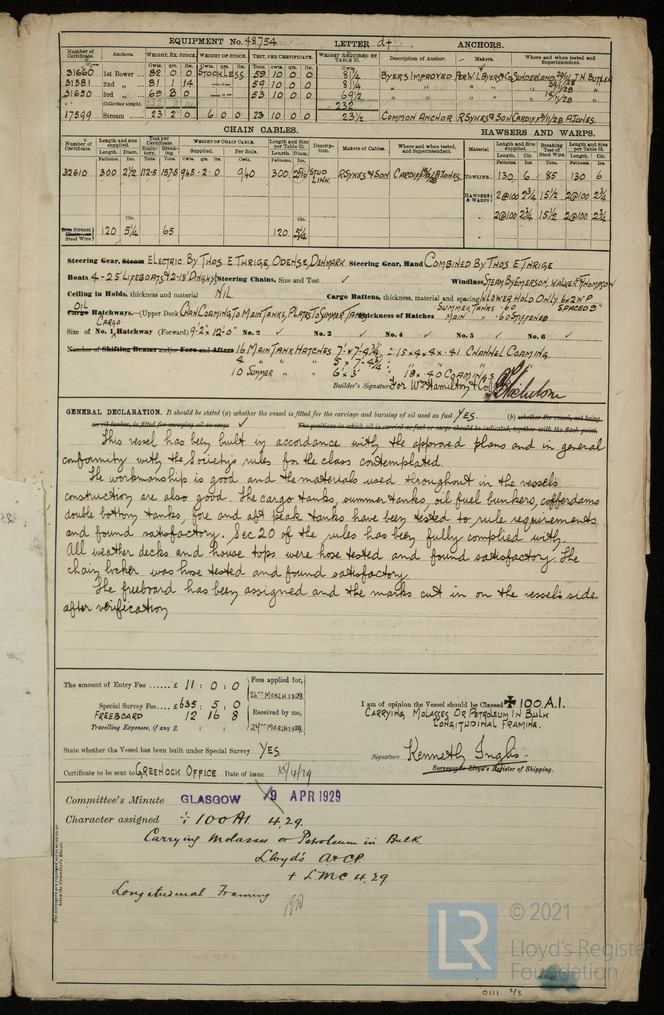 EQUIPMENT No. 48754 LETTER d+ ANCHORS.
Number of Certificate. Anchors. WEIGHT, EX. STOCK WEIGHT OF STOCK. TEST, PER CERTIFICATE. WEIGHT REQUIRED BY TABLE 31. Description of Anchor. Makers. Where and when tested and Superintendent.
Cwts. qrs. lbs. Cwts. qrs. lbs. Tons. cwts. qrs. lbs. Cwts.
31660 1st Bower 82 0 0 STOCKLESS 59 10 0 0 81¼ BYERS IMPROVED PER W. L. BYERS & CO SUNDERLAND J. H. BUTLER
31581 2nd " 81 1 14 59 10 0 0 81¼
31650 3rd " 69 3 0 53 10 0 0 69½
Collective weight. 232
17599 Stream 23 2 0 6 0 0 23 10 0 0 23½ COMMON ANCHOR R SYKES & SON CARDIFF A JONES.
CHAIN CABLES. HAWSERS AND WARPS.
Number of Certificate. Length and size supplied. Test per Certificate. WEIGHT OF CHAIN CABLE. Length and Size per Table 31. Description. Makers of Cables. Where and when tested, and Superintendent. Material. Length and Size supplied. Breaking Test of Steel Wire. Length and Size per Table 31.
32610 300 2½ 112.5 157.5 945.2.0 940 300 2 5/16 STUD LINK R SYKES & SON CARDIFF A JONES. TOWLINE 130 6 85 130 6
HAWSERS & WARPS 2@100 2¾ 15½ 2@100 2¾
" 2@100 2¾ 15½ 2@100 2¾
Steel Wire 120 5¼ 65 120 5¼
Steering Gear, Steam ELECTRIC BY THOS E THRIGE, ODENSE, DENMARK Steering Gear, Hand COMBINED BY THOS E THRIGE
Boats 4-25' LIFEBOATS & 2-18' DINGHYS Steering Chains, Size and Test ✓ Windlass STEAM BY EMERSON, WALKER & THOMPSON
Ceiling in Holds, thickness and material NIL Cargo Battens, thickness, material and spacing IN LOWER HOLD ONLY 6 x 2 W.P SPACED 9"
OIL Cargo Hatchways.—(Upper Deck) CHAN COAMING TO MAIN TANKS, PLATES TO SUMMER TANKS Thickness of Hatches SUMMER TANKS .60 MAIN " .60 STIFFENED
Size of No. 1 CARGO Hatchway (Forward) 9'-2" x 12'-0" No. 2 ✓ No. 3 ✓ No. 4 ✓ No. 5 ✓ No. 6 ✓
Number of Shifting Beams and/or Fore and Afters 16 MAIN TANK HATCHES 7' x 7'-4¾" = 15 x 4 x 4 x .41 CHANNEL COAMING.
4 " " " 5' x 7'-4¾"
10 SUMMER " " 6' x 3' 18" x .40 COAMINGS
Builder's Signature For Wm Hamilton & Co
GENERAL DECLARATION. It should be stated (a) whether the vessel is fitted for the carriage and burning of oil used as fuel YES. (b) whether the vessel, not being
an oil tanker, is fitted for carrying oil as cargo ✓ The positions in which oil is carried as fuel or cargo should be indicated, together with the flash point.
This vessel has been built in accordance with the approved plans and in general
conformity with the Society's rules for the class contemplated.
The workmanship is good and the materials used throughout in the vessel's
construction are also good. The cargo tanks, summer tanks, oil fuel bunkers, cofferdams
double bottom tanks, fore and aft peak tanks have been tested to rule requirements
and found satisfactory. Sec 20 of the rules has been fully complied with.
All weather decks and house tops were hose tested and found satisfactory. The
chain locker was hose tested and found satisfactory.
The freeboard has been assigned and the marks cut in on the vessel's side
after verification
The amount of Entry Fee ...... £ 11 : 0 : 0 Fees applied for,
26TH MARCH 1929.
Special Survey Fee .... £ 635 : 5 : 0
FREEBOARD 12 16 8 Received by me,
Travelling Expenses, if any £ : : MARCH 1929.
I am of opinion the Vessel should be Classed ✠ 100.A.I.
CARRYING MOLASSES OR PETROLEUM IN BULK
LONGITUDINAL FRAMING.
State whether the Vessel has been built under Special Survey YES
Signature Kenneth Inglis.
Surveyor to Lloyd's Register of Shipping.
Certificate to be sent to GREENOCK OFFICE Date of issue 15/4/29
Committee's Minute GLASGOW 9 APR 1929
Character assigned ÷ 100A1. 4.29.
Carrying Molasses or Petroleum in Bulk
Lloyd's A & CP.
+ LMC 4.29
Longitudinal Framing
LR
© 2021
Lloyd's Register
Foundation
0111 2/3